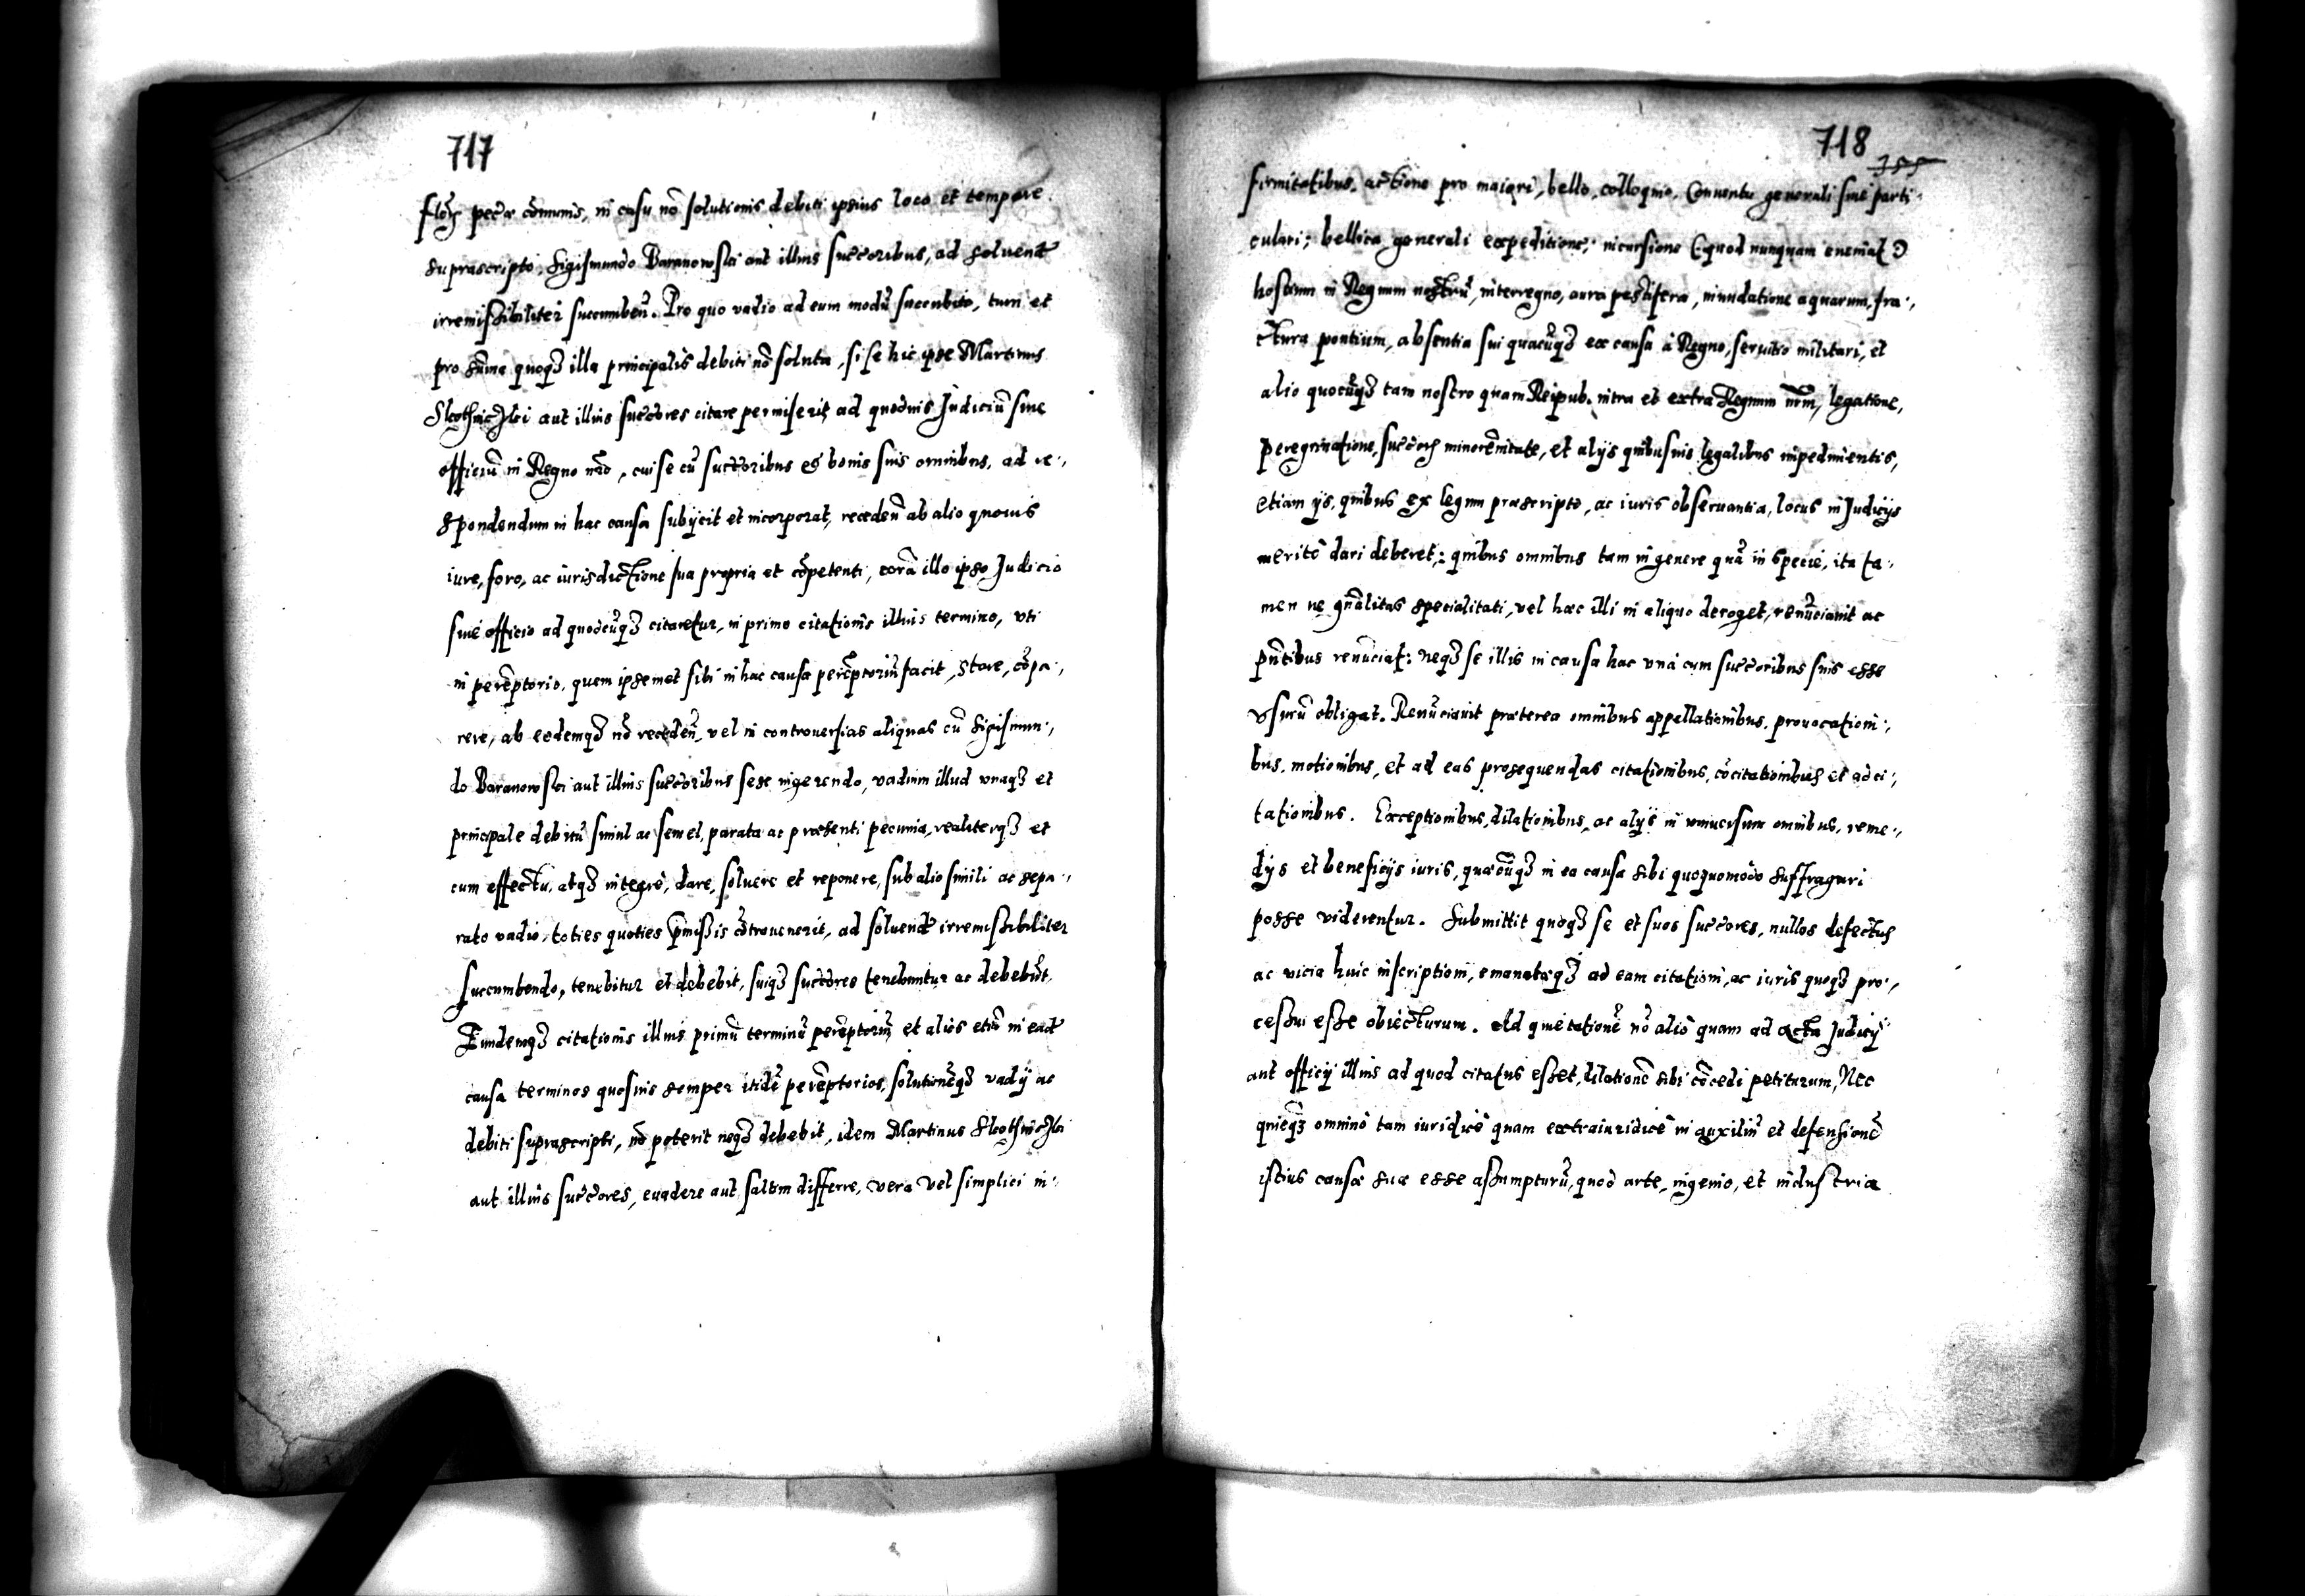 717
flōr̄ pecūæ cōmunis, in casu nō solutionis debiti ipsius loco et tempore
suprascripto, Sigismundo Baranowski aut illius succ̄oribus, ad soluend̄
irremissibiliter succumbeñ. Pro quo vadio ad eum modū succubito, tum et
pro sūma quoqȝ illa principalis debiti nō soluta, si se hic ipse Martinus
aut illius succ̄ores citare permiserit, ad quoduis Judiciū siue
officiū in Regno nr̄o, cui se cū succ̄oribus et bonis suis omnibus, ad re.,
spondendum in hac causa subijcit et incorporat, recedeñ ab alio quouis
iure, foro, ac iurisdictione sua propria et cōpetenti, corā illo ipso Judicio
siue officio ad quodcūqȝ citaretur, in primo citationis illius termino, vti
in perēptorio, quem ipsemet sibi in hac causa perēptoriū facit, stare, cōpa.,
rere, ab eodemqȝ nō recedeñ, vel in controuersias aliquas cū Sigismun.,
do Baranowski aut illius succ̄oribus sese ingerendo, vadium illud vnaqȝ et
principale debitū simul ac semel, parata ac præsenti pecunia, realiterqȝ et
cum effectu, atqȝ integrè, dare, soluere et reponere, sub alio simili ac sepa.,
rato vadio, toties quoties p̄missis cōtrouenerit, ad soluend̄ irremissibiliter
succumbendo, tenebitur et debebit, suiqȝ succ̄ores tenebuntur ac debebūt.
Eundemqȝ citationis illius primū terminū perēptoriū, et alios etiā in ead̄
causa terminos quosuis semper itidē perēptorios, solutionēqȝ vadij ac
debiti suprascripti, nō poterit neqȝ debebit, idem Martinus
aut illius succ̄ores, euadere aut saltem differre, vera vel simplici in.,
718
355
firmitatibus, actione pro maiori, bello, colloquio, Conuentu generali siue parti.
culari; bellica generali expeditione, incursione (quod nunquam eueniat)
hostium in Regnum nostrū, interregno, aura pestifera, inundatione aquarum, fra.,
ctura pontium, absentia sui quacūqȝ ex causa à Regno, seruitio militari, et
alio quocūqȝ tam nostro quam Reipub. intra et extra Regnum nr̄m, legatione,
peregrinatione, succ̄or̄ minorēnitate, et alijs quibusuis legalibus impedimentis,
etiam ijs, quibus ex legum præscripto, ac iuris obseruantia, locus in Judicijs
meritò dari deberet: quibus omnibus tam in genere quā in specie, ita ta.
men ne gn̄alitas specialitati, vel hæc illi in aliquo deroget, renūciauit ac
pn̄tibus renūciat: neqȝ se illis in causa hac vnà cum succ̄oribus suis esse
vsurū obligat. Renūciauit præterea omnibus appellationibus, prouocationi.,
bus, motionibus, et ad eas prosequendas citationibus, cōcitationibus et adci.,
tationibus. Exceptionibus, dilationibus, ac alijs in vniuersum omnibus, reme.,
dijs et beneficijs iuris, quæcūqȝ in ea causa sibi quoquomodo suffragari
posse viderentur. Submittit quoqȝ se et suos succ̄ores, nullos defectus
ac vicia huic inscriptioni, emanatæqȝ ad eam citationi, ac iuris quoqȝ pro.,
cessui esse obiecturum. Ad quietationē nō aliò quam ad acta Judicij
aut officij illius ad quod citatus esset, dilationē sibi cōcedi petiturum, Nec
quicqȝ omninò tam iuridicè quam extraiuridicè in auxiliū et defensionē
istius causæ suæ esse assumpturū, quod arte, ingenio, et industria